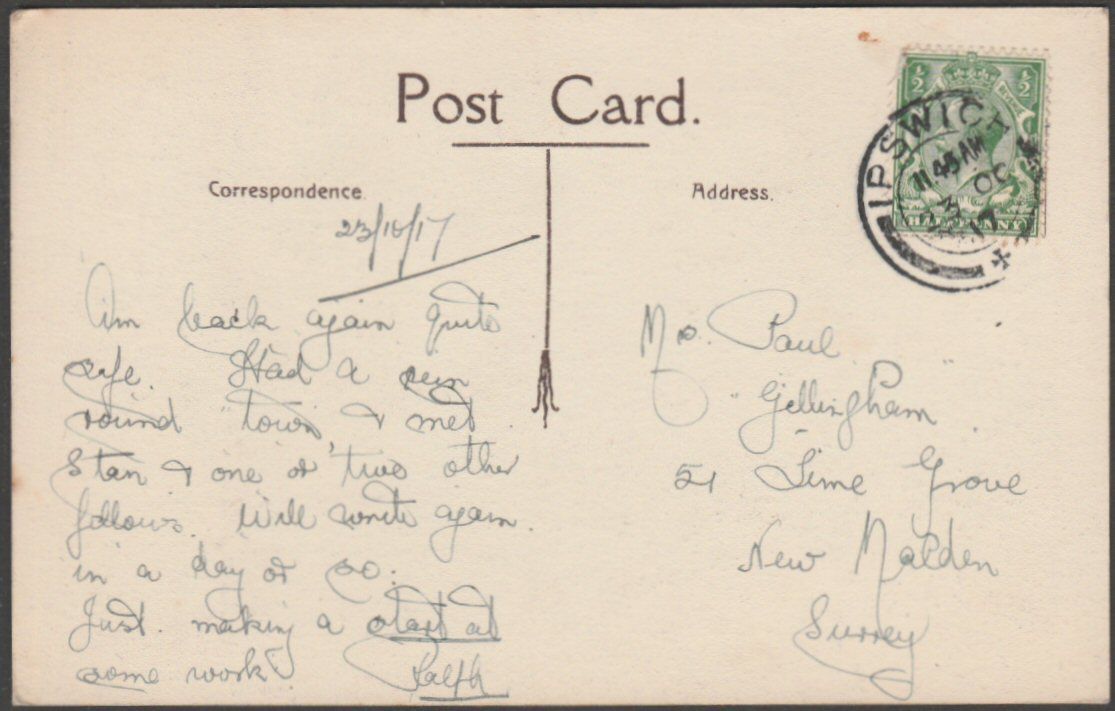 Post Card.
Correspondence.
23/10/17
Am back again quite
safe. Had a run
round town, & met
Stan & one or two other
fellows. Will write again
in a day or so.
Just making a start at
some work
Ralph
Address.
½ ½
HALFPENNY
IPSWICH
11 45 AM
OC
17
Paul
Gillingham
51 Lime Grove
New Malden
Surrey